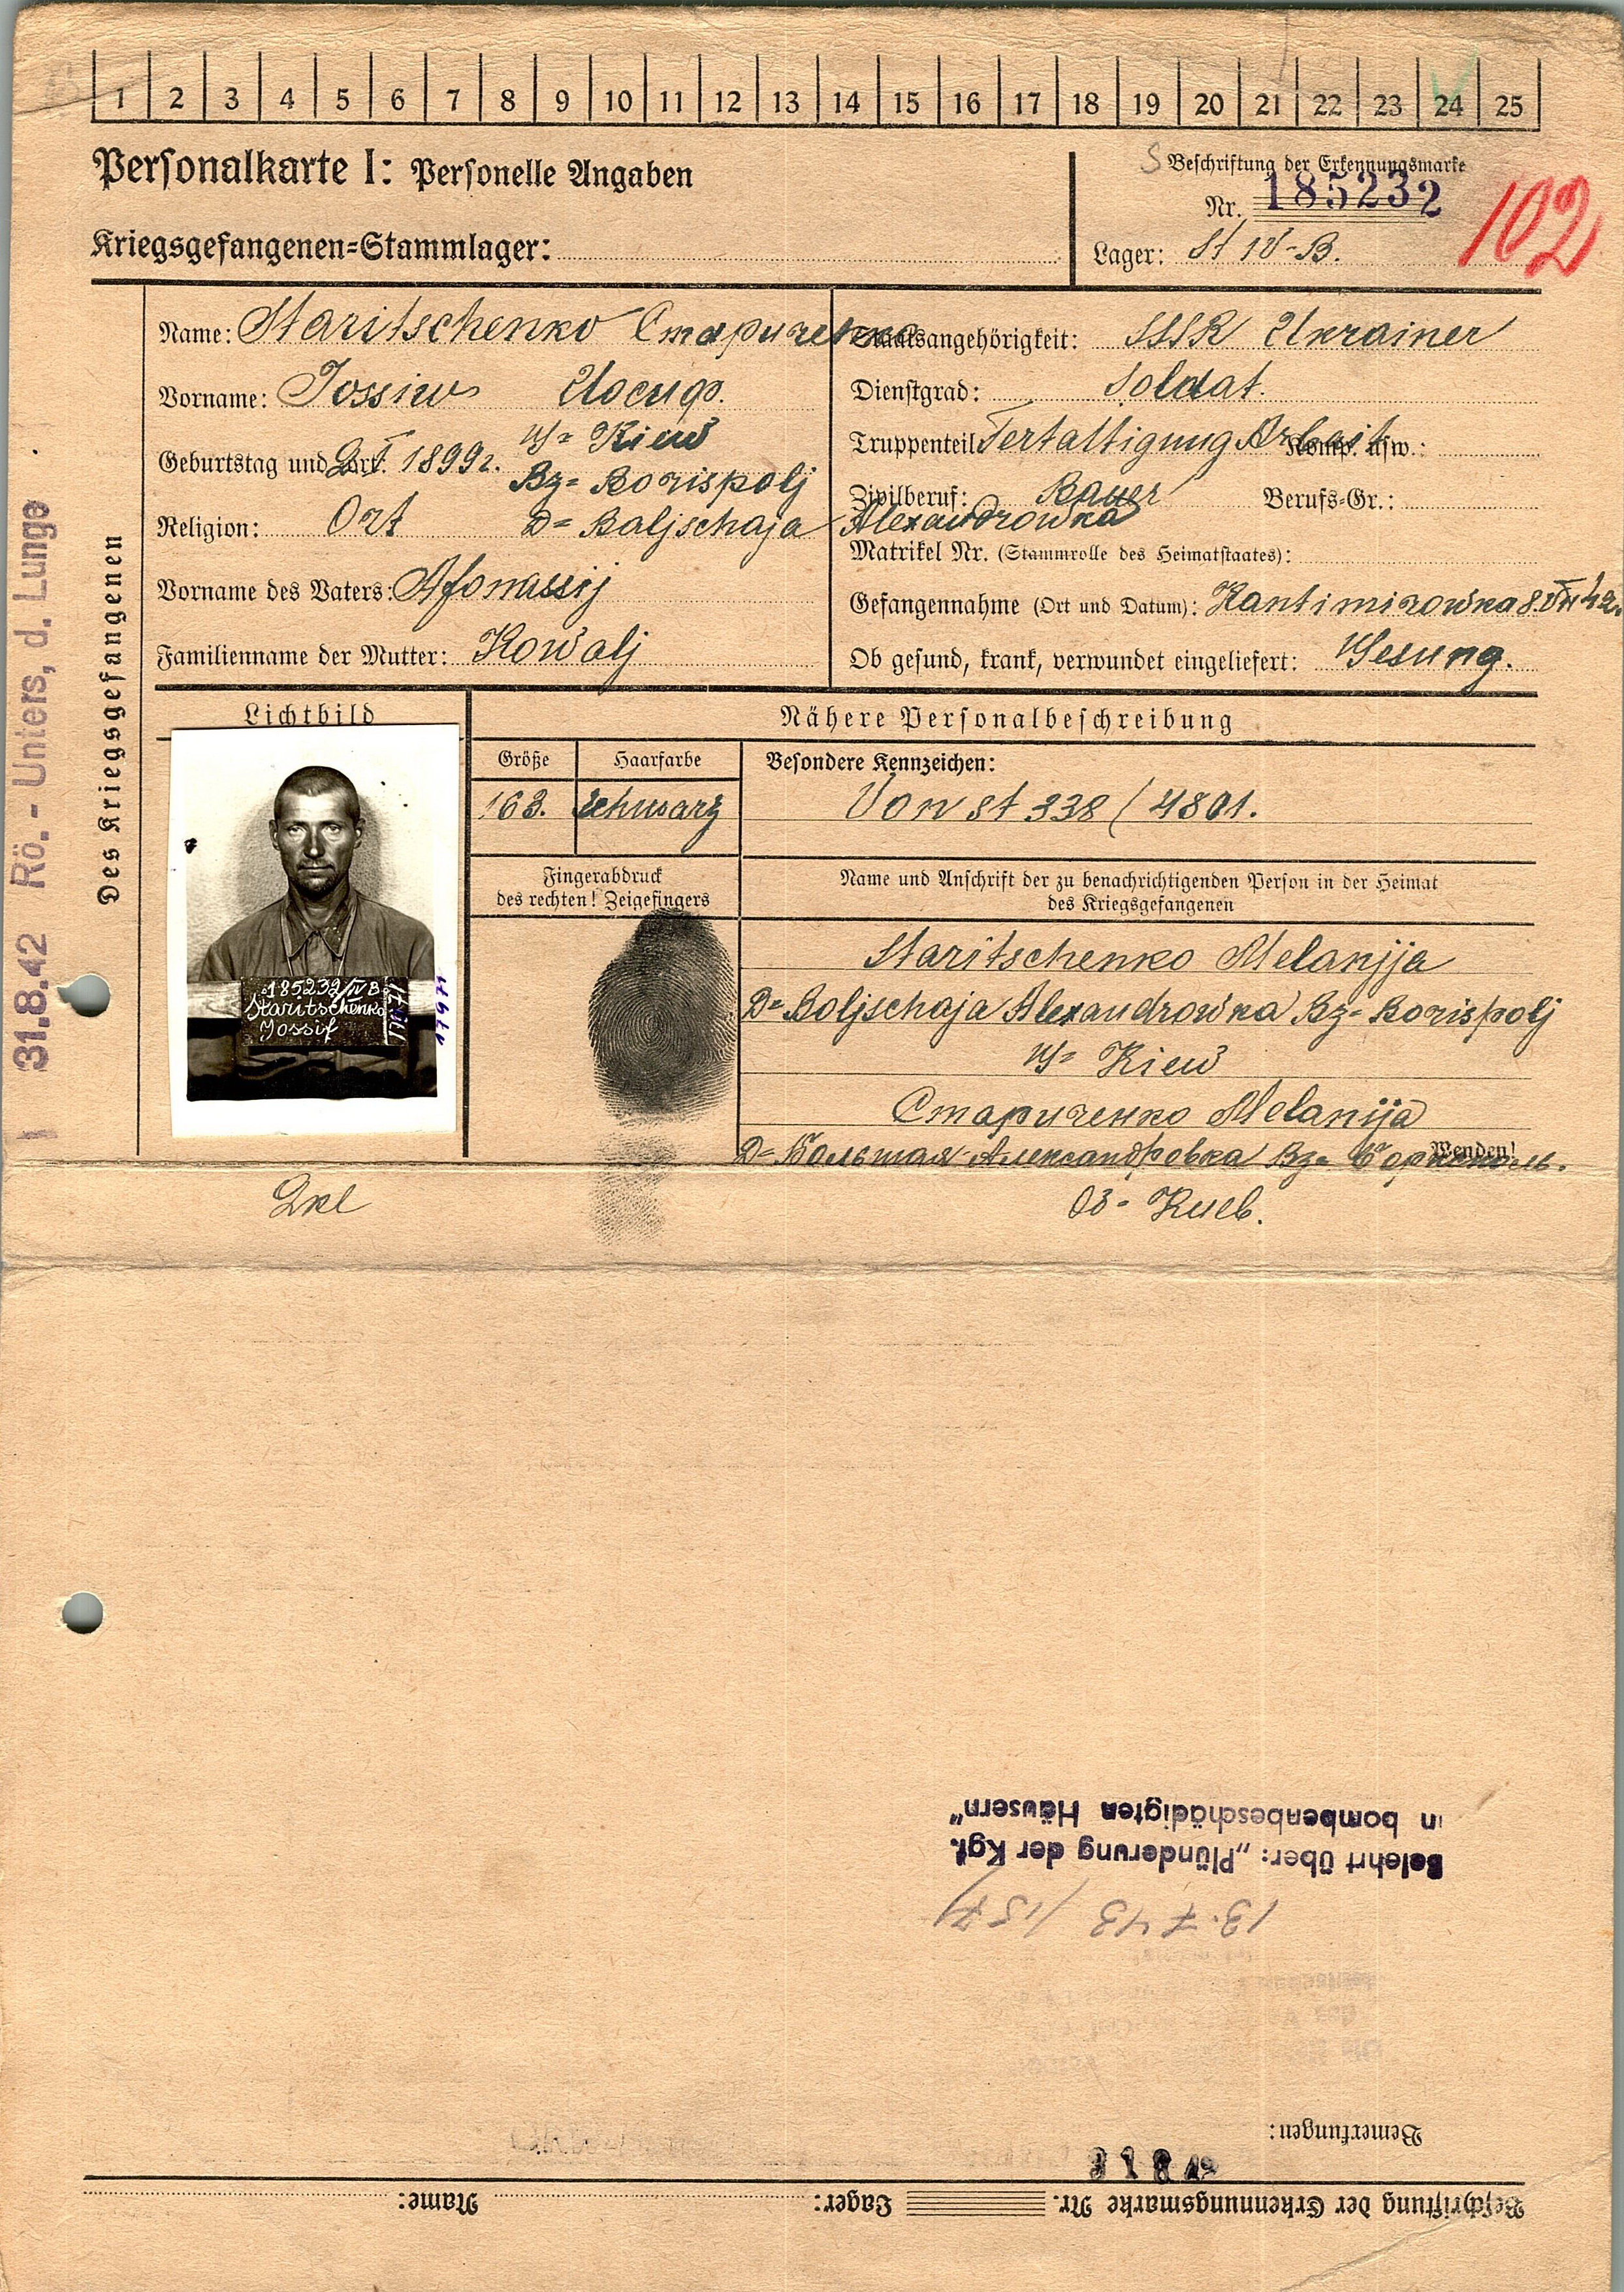 1 2 3 4 5 6 7 8 9 10 11 12 13 14 15 16 17 18 19 20 21 22 23 24 25
Personalkarte I: Personelle Angaben
Kriegsgefangenen=Stammlager:
Beschriftung der Erkennungsmarke
Nr. 185232
Lager: St IV-B.
102
Des Kriegsgefangenen
31.8.42 Rö.-Unters, d. Lunge
Name: Staritschenko Стариченко
Vorname: Jossiw Иосиф.
Geburtstag und Ort: 1899г. Kiew
Bz= Borispolj
Religion: Ort D= Baljschaja Alexandrowka
Vorname des Vaters: Afonassij
Familienname der Mutter: Kowalj
Staatsangehörigkeit: SSSR Ukrainer
Dienstgrad: Soldat.
Truppenteil: Tertaltigung Arbeit Komp. usw.:
Zivilberuf: Bauer Berufs=Gr.:
Matrikel Nr. (Stammrolle des Heimatstaates):
Gefangennahme (Ort und Datum): Kantimirowka 8.VII 42.
Ob gesund, krank, verwundet eingeliefert: Gesung.
Lichtbild
185232/IV B
Staritschenko
Jossif
17971
Nähere Personalbeschreibung
Größe Haarfarbe Besondere Kennzeichen:
163. schwarz Von St 338 / 4801.
Fingerabdruck
des rechten! Zeigefingers
Name und Anschrift der zu benachrichtigenden Person in der Heimat
des Kriegsgefangenen
Staritschenko Melanjja
D= Boljschaja Alexandrowka Bz= Borispolj
Kiew
Стариченко Melanija
D= Большая Александровка Bz= Борисполь.
Wenden!
Оз= Киев.
Belehrt über: „Plünderung der Kgf.
in bombenbeschädigten Häusern"
13.7.43
Bemerkungen:
Beschriftung der Erkennungsmarke Nr. Lager: Name: